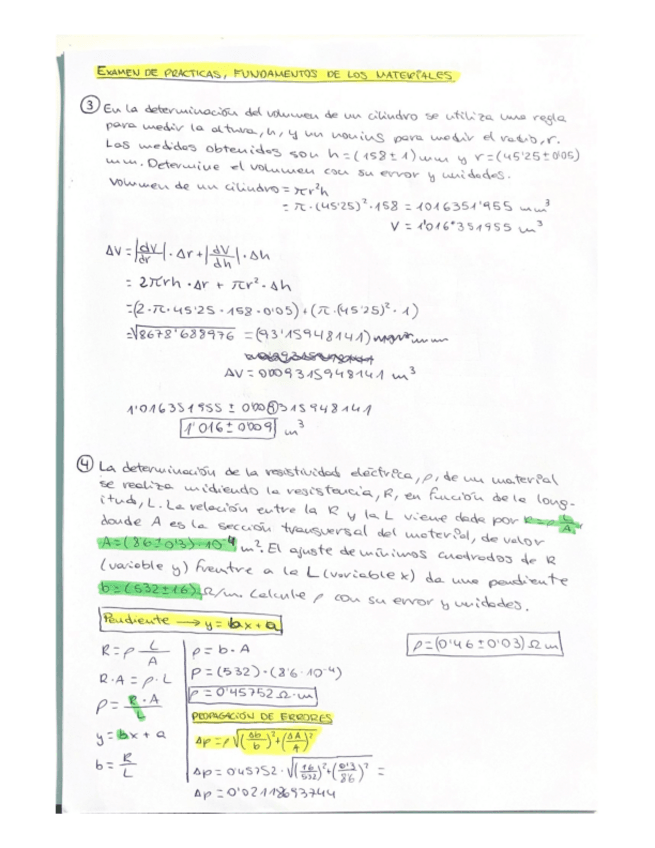 EXAMEN DE PRACTICAS, FUNDAMENTOS DE LOS MATERIALES
③ En la determinación del volumen de un cilindro se utiliza una regla
para medir la altura, h, y un nonius para medir el radio, r.
Las medidas obtenidas son h = (158 ± 1) mm y r = (45'25 ± 0'05)
mm. Determine el volumen con su error y unidades.
Volumen de un cilindro = πr²h
= π · (45'25)² · 158 = 1016351'955 mm³
V = 1'016351955 m³
ΔV = |dV/dr| · Δr + |dV/dh| · Δh
= 2πrh · Δr + πr² · Δh
= (2 · π · 45'25 · 158 · 0'05) + (π · (45'25)² · 1)
= √8678'688976 = (93'15948141) mm
ΔV = 0'009315948141 m³
1'016351955 ± 0'009315948141
1'016 ± 0'009 m³
④ La determinación de la resistividad eléctrica, ρ, de un material
se realiza midiendo la resistencia, R, en función de la long-
itud, L. La relación entre la R y la L viene dada por R = ρ L/A
donde A es la sección transversal del material, de valor
A = (8'6 ± 0'3) · 10⁻⁴ m². El ajuste de mínimos cuadrados de R
(variable y) frentre a la L (variable x) da una pendiente
b = (532 ± 16) Ω/m. Calcule ρ con su error y unidades.
Pendiente → y = bx + a
ρ = (0'46 ± 0'03) Ω m
R = ρ L/A
R · A = ρ · L
ρ = R · A / L
y = bx + a
b = R/L
ρ = b · A
ρ = (532) · (8'6 · 10⁻⁴)
ρ = 0'45752 Ω · m
PROPAGACIÓN DE ERRORES
Δρ = ρ √(Δb/b)² + (ΔA/A)²
Δρ = 0'45752 · √(16/532)² + (0'3/8'6)² =
Δρ = 0'02118693744